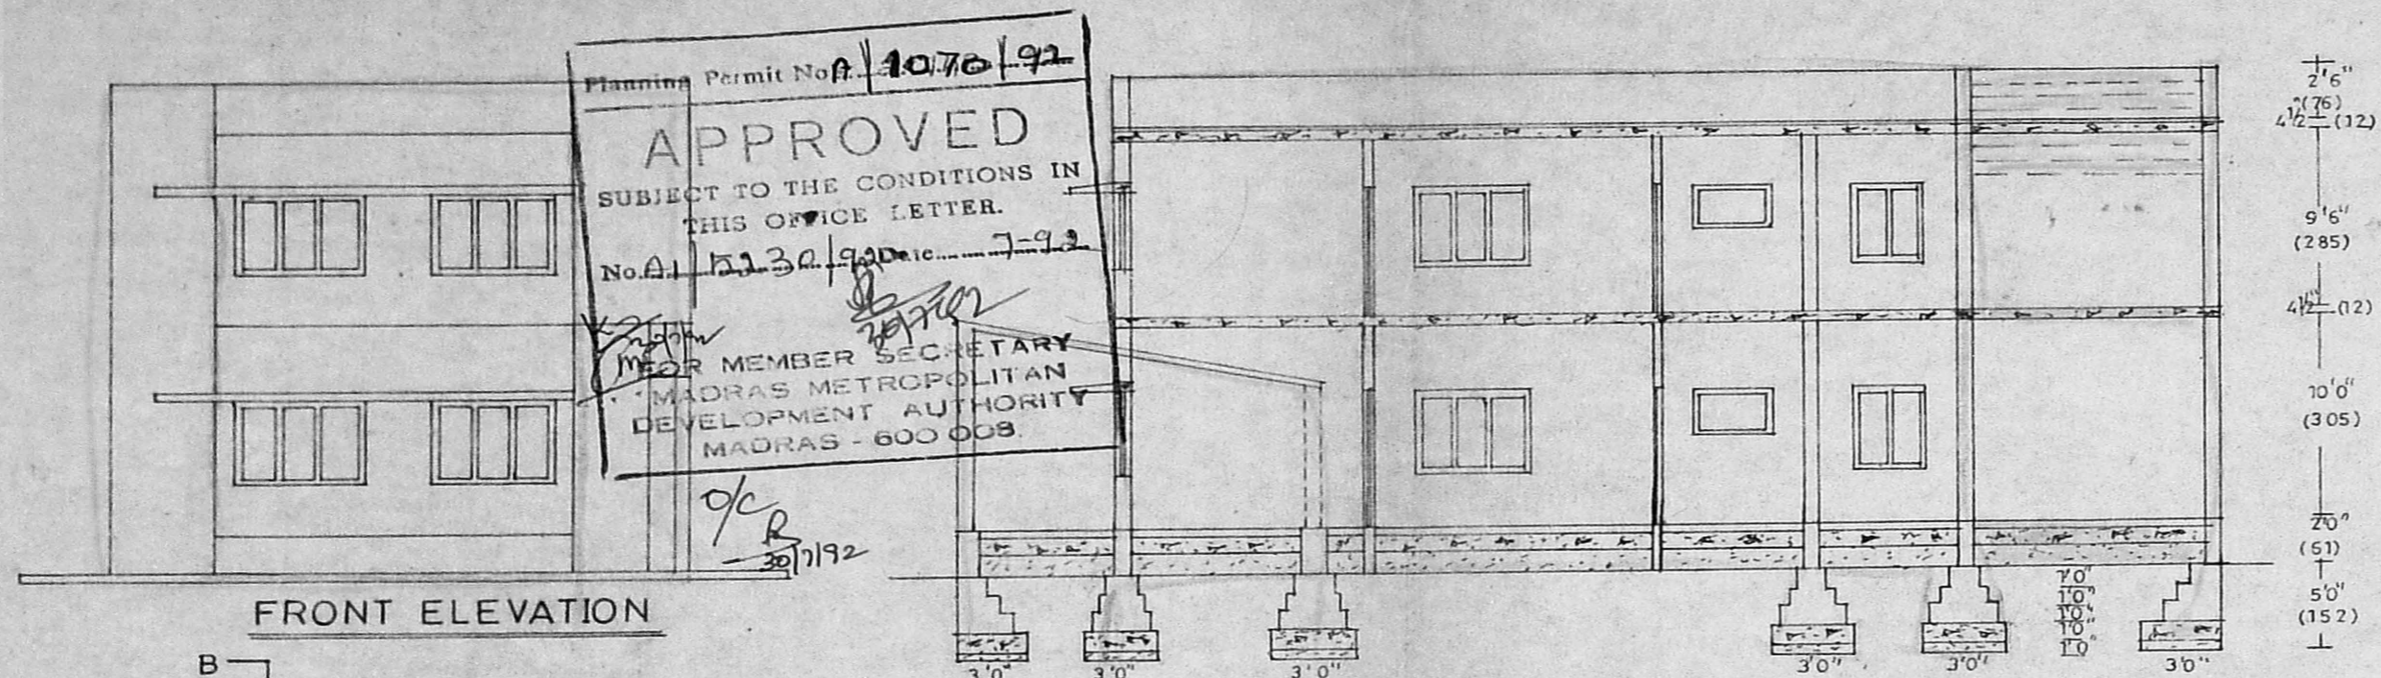 Planning Permit No. A/1070/92
APPROVED
SUBJECT TO THE CONDITIONS IN
THIS OFFICE LETTER.
No. A1/15230/92 Date 7-92
30/7/92
FOR MEMBER SECRETARY
MADRAS METROPOLITAN
DEVELOPMENT AUTHORITY
MADRAS - 600 008.
O/C
30/7/92
FRONT ELEVATION
B
2'6"
(76)
4½" (12)
9'6"
(285)
4½" (12)
10'0"
(305)
2'0"
(61)
5'0"
(152)
1'0"
1'0"
1'0"
1'0"
1'0"
3'0" 3'0" 3'0" 3'0" 3'0" 3'0"